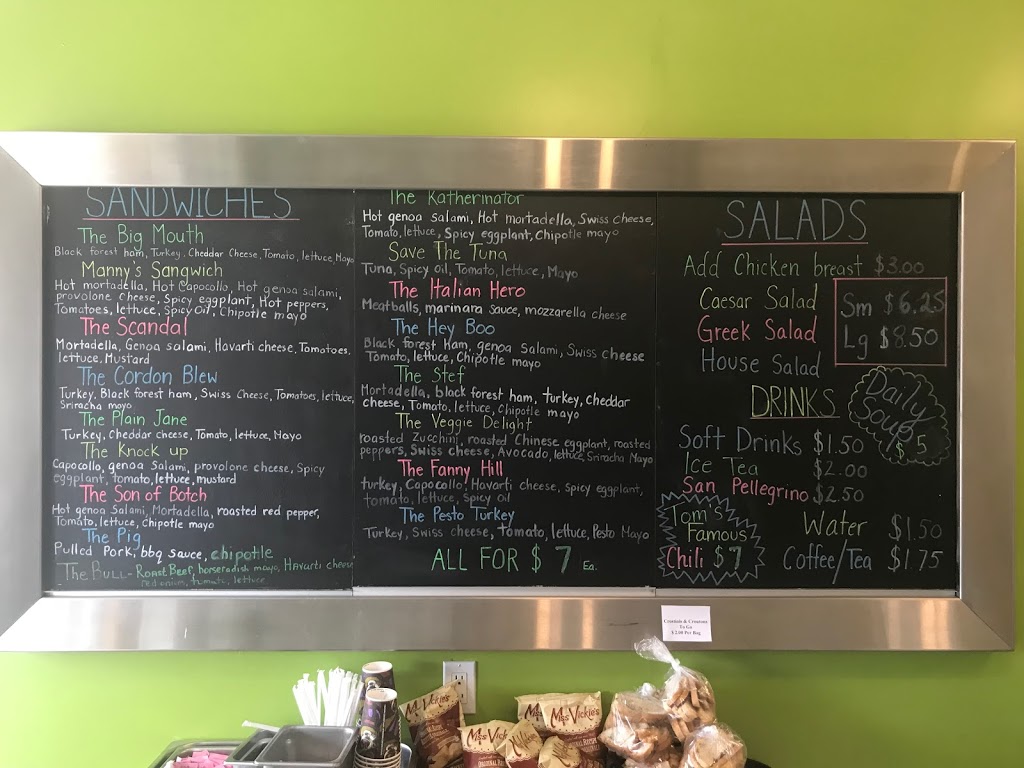 SANDWICHES
The Big Mouth
Black forest ham, Turkey, Cheddar Cheese, Tomato, lettuce, Mayo
Manny's Sangwich
Hot mortadella, Hot Capocollo, Hot genoa salami,
provolone cheese, Spicy eggplant, Hot peppers,
Tomatoes, lettuce, Spicy Oil, Chipotle mayo
The Scandal
Mortadella, Genoa salami, Havarti cheese, Tomatoes,
lettuce, Mustard
The Cordon Blew
Turkey, Black forest ham, Swiss Cheese, Tomatoes, lettuce,
Sriracha mayo
The Plain Jane
Turkey, Cheddar cheese, Tomato, lettuce, Mayo
The Knock up
Capocollo, genoa Salami, provolone cheese, Spicy
eggplant, tomato, lettuce, mustard
The Son of Botch
Hot genoa Salami, Mortadella, roasted red pepper,
Tomato, lettuce, chipotle mayo
The Pig
Pulled Pork, bbq sauce, chipotle
The Bull - Roast Beef, horseradish mayo, Havarti cheese
red onion, tomato, lettuce
The Katherinator
Hot genoa salami, Hot mortadella, Swiss cheese,
Tomato, lettuce, Spicy eggplant, Chipotle mayo
Save The Tuna
Tuna, Spicy oil, Tomato, lettuce, Mayo
The Italian Hero
Meatballs, marinara sauce, mozzarella cheese
The Hey Boo
Black forest Ham, genoa Salami, Swiss cheese
Tomato, lettuce, Chipotle mayo
The Stef
Mortadella, black forest ham, turkey, cheddar
cheese, Tomato, lettuce, chipotle mayo
The Veggie Delight
roasted Zucchini, roasted Chinese eggplant, roasted
peppers, Swiss cheese, Avocado, lettuce, Sriracha Mayo
The Fanny Hill
turkey, Capocollo, Havarti cheese, spicy eggplant,
tomato, lettuce, Spicy oil
The Pesto Turkey
Turkey, Swiss cheese, Tomato, lettuce, Pesto Mayo
ALL FOR $7 Ea.
SALADS
Add Chicken breast $3.00
Caesar Salad
Greek Salad
House Salad
Sm $6.25
Lg $8.50
DRINKS
Daily
Soup
$5
Soft Drinks $1.50
Ice Tea $2.00
San Pellegrino $2.50
Water $1.50
Coffee/Tea $1.75
Tom's
Famous
Chili $7
Crostinis & Croutons
To Go
$2.00 Per Bag
Miss Vickie's
Miss Vickie's
Miss Vickie's